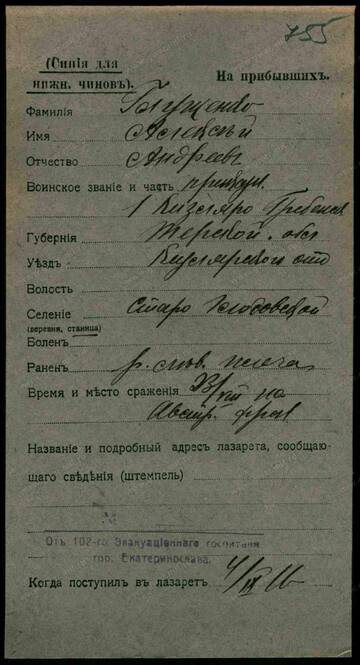 755
(Синія для
нижн. чиновъ).
На прибывшихъ.
Фамилія Глущенко
Имя Алексѣй
Отчество Андреев
Воинское званіе и часть приказн.
1 Кизляро Гребенск
Губернія Терской. обл
Уѣздъ Кизлярскаго отд
Волость
Селеніе Старо Хлодовской
(деревня, станица)
Боленъ
Раненъ р. лѣв. плеча
Время и мѣсто сраженія /VIII на
Австр. фрон
Названіе и подробный адресъ лазарета, сообщаю-
щаго свѣдѣнія (штемпель)
Отъ 102-го Эвакуаціоннаго госпиталя
гор. Екатеринослава.
Когда поступилъ въ лазаретъ 4/IX 16